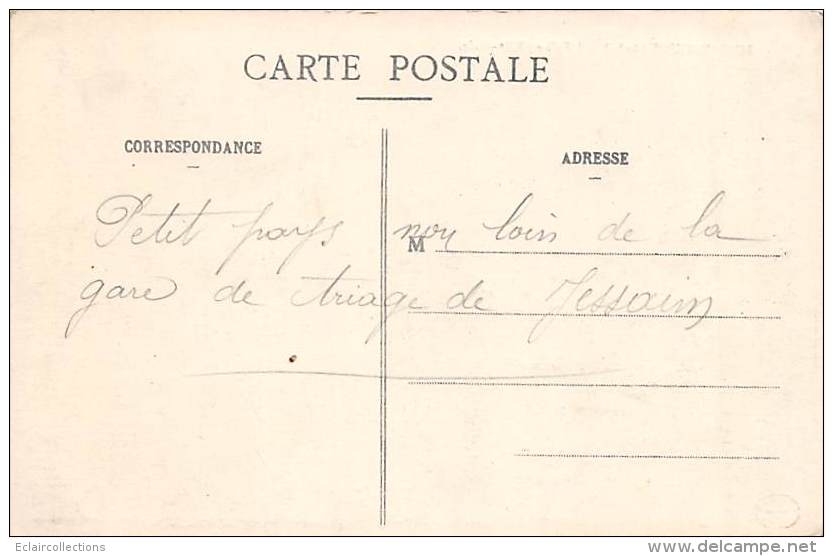 CARTE POSTALE
CORRESPONDANCE
ADRESSE
Petit pays non loin de la
M
gare de triage de Jessains
Eclaircollections
www.delcampe.net